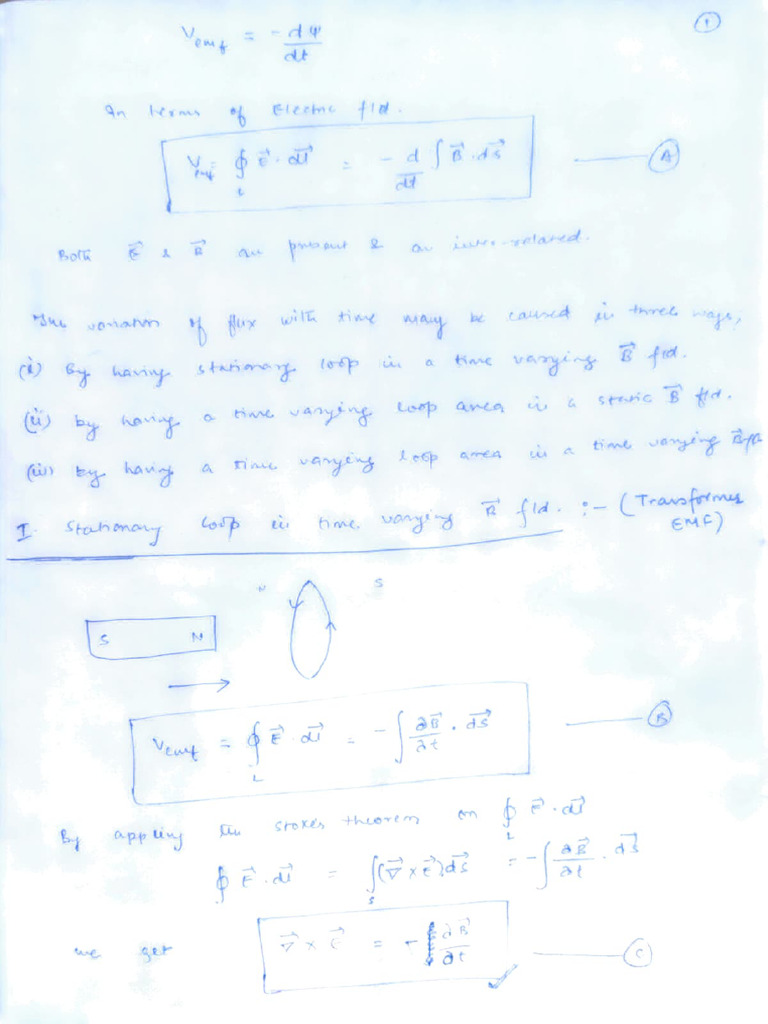 ①
V_emf = -dΨ/dt
In terms of Electric fld.
V_emf = ∮_L E⃗ · dl⃗ = - d/dt ∫ B⃗ · ds⃗ —— Ⓐ
Both E⃗ & B⃗ are present & are inter-related.
The variation of flux with time may be caused in three ways,
(i) By having stationary loop in a time varying B⃗ fld.
(ii) by having a time varying loop area in a static B⃗ fld.
(iii) by having a time varying loop area in a time varying B⃗ fld
I. Stationary loop in time varying B⃗ fld. :- (Transformer EMF)
N S
S N
V_emf = ∮_L E⃗ · dl⃗ = -∫ ∂B⃗/∂t · ds⃗ —— Ⓑ
By appling the stokes theorem on ∮_L E⃗ · dl⃗
∮ E⃗ · dl⃗ = ∫_S (∇⃗ × E⃗) ds⃗ = -∫ ∂B⃗/∂t · ds⃗
we get ∇⃗ × E⃗ = - ∂B⃗/∂t —— Ⓒ